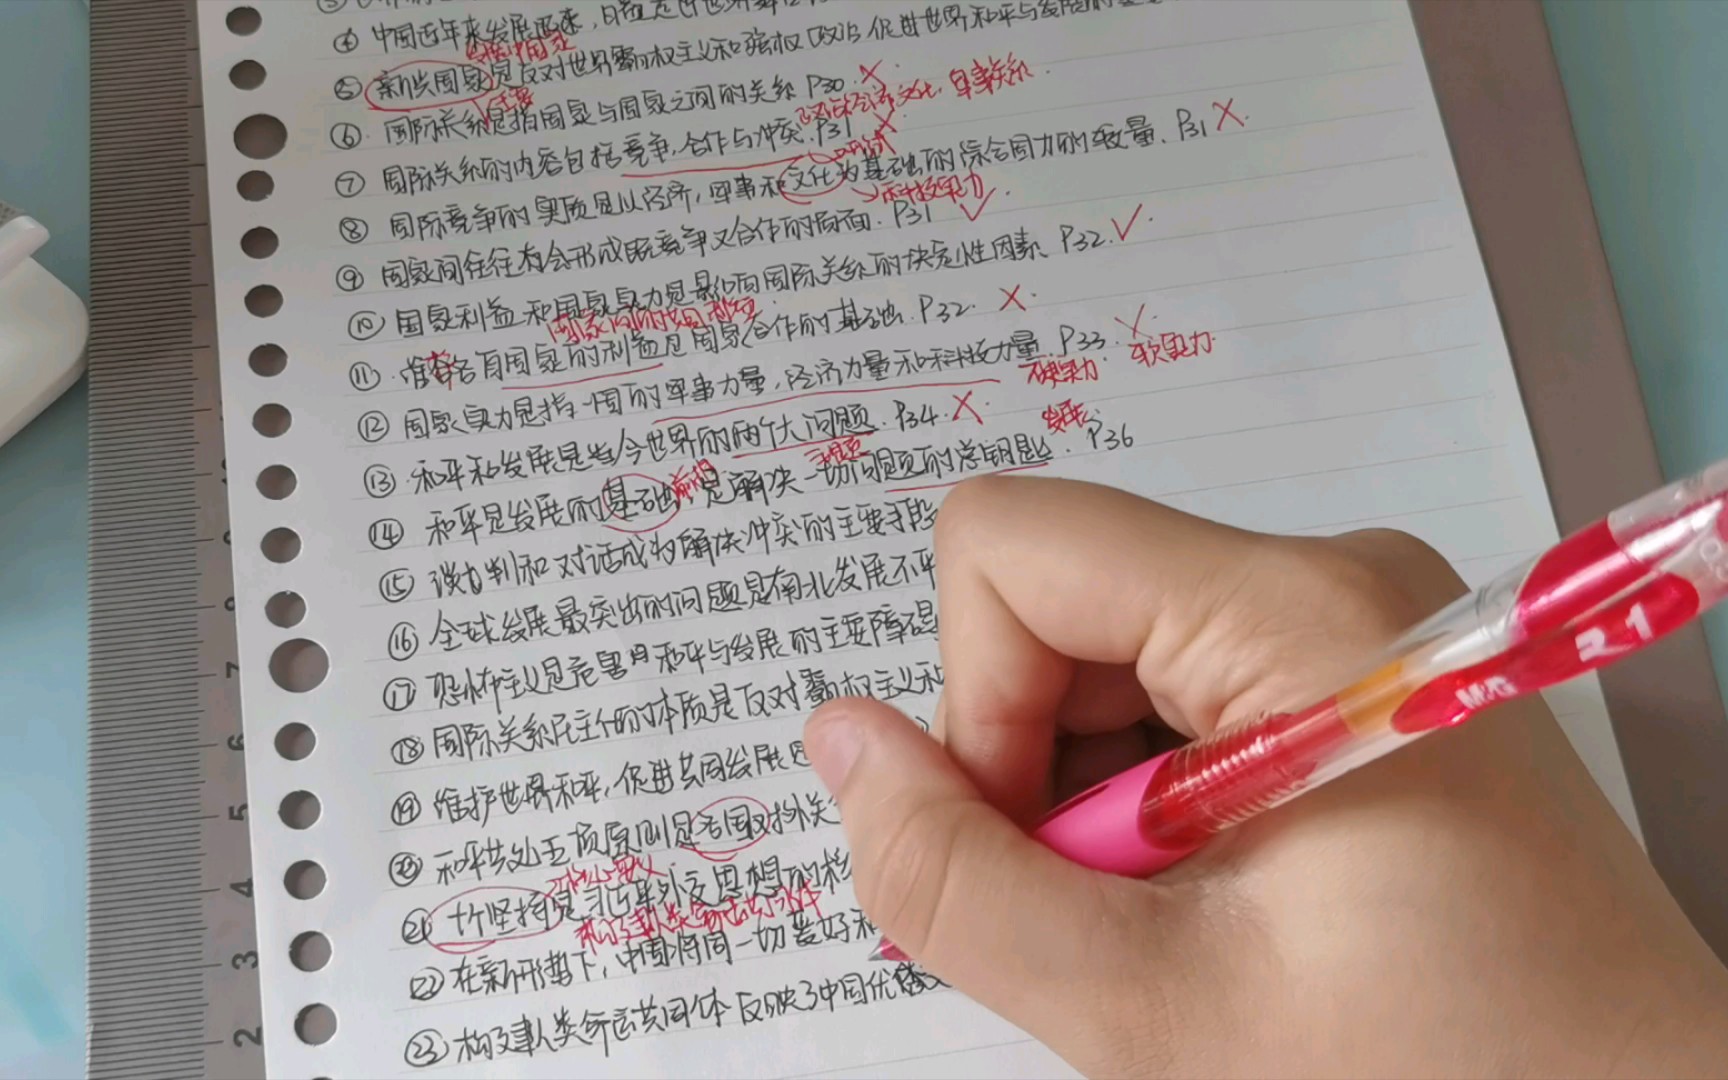 ④ 中国近年来发展迅速，日益走近世界舞台
⑤ 新兴国家是反对世界霸权主义和强权政治，促进世界和平与发展的
⑥ 国际关系是指国家与国家之间的关系 P30 ×
主要
政治经济文化、军事关系
⑦ 国际关系的内容包括竞争，合作与冲突．P31 ×
⑧ 国际竞争的实质是以经济，军事和文化为基础的综合国力的较量．P31 ×
科技实力
⑨ 国家间往往有会形成既竞争又合作的局面．P31 ✓
⑩ 国家利益和国家实力是影响国际关系的决定性因素．P32 ✓
国家间的共同利益
⑪ 维护各自国家的利益是国家合作的基础．P32 ×
⑫ 国家实力是指一国的军事力量，经济力量和科技力量．P33
硬实力
软实力
⑬ 和平和发展是当今世界的两个大问题．P34 ×
主题
发展
⑭ 和平是发展的基础，是解决一切问题的总钥匙．P36
前提
⑮ 谈判和对话成为解决冲突的主要手段
⑯ 全球发展最突出的问题是南北发展不平
⑰ 恐怖主义是危害和平与发展的主要障碍
⑱ 国际关系民主化的体质是反对霸权主义和
⑲ 维护世界和平，促进共同发展是
⑳ 和平共处五项原则是各国对外关
㉑ 坚持是习近平外交思想的核
构建人类命运共同体
㉒ 在新形势下，中国将同一切爱好和
㉓ 构建人类命运共同体反映了中国优
M&G
R1
7
6
5
4
3
2